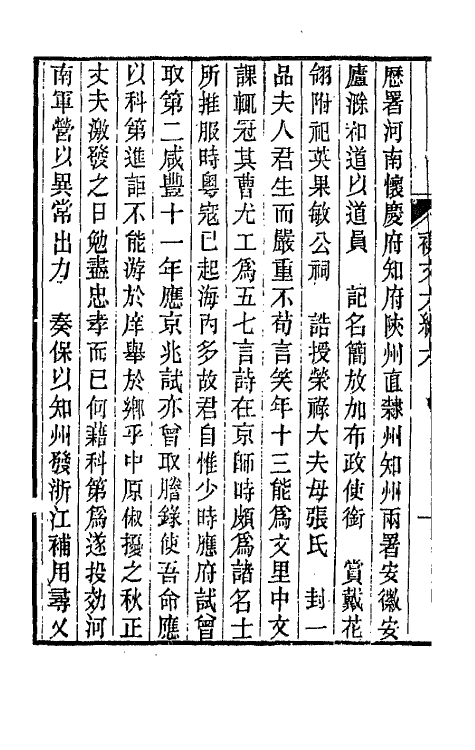 歴署河南懷慶府知府陝州直隸州知州兩署安徽安
廬滁和道以道員　記名簡放加布政使銜　賞戴花
翎附祀英果敏公祠　誥授榮祿大夫母張氏　封一
品夫人君生而嚴重不苟言笑年十三能爲文里中文
課輒冠其曹尤工爲五七言詩在京師時頗爲諸名士
所推服時粵寇已起海內多故君自惟少時應府試曾
取第二咸豐十一年應京兆試亦曾取謄錄使吾命應
以科第進詎不能游於庠舉於鄉乎中原俶擾之秋正
丈夫激發之日勉盡忠孝而已何藉科第爲遂投効河
南軍營以異常出力　奏保以知州發浙江補用尋又